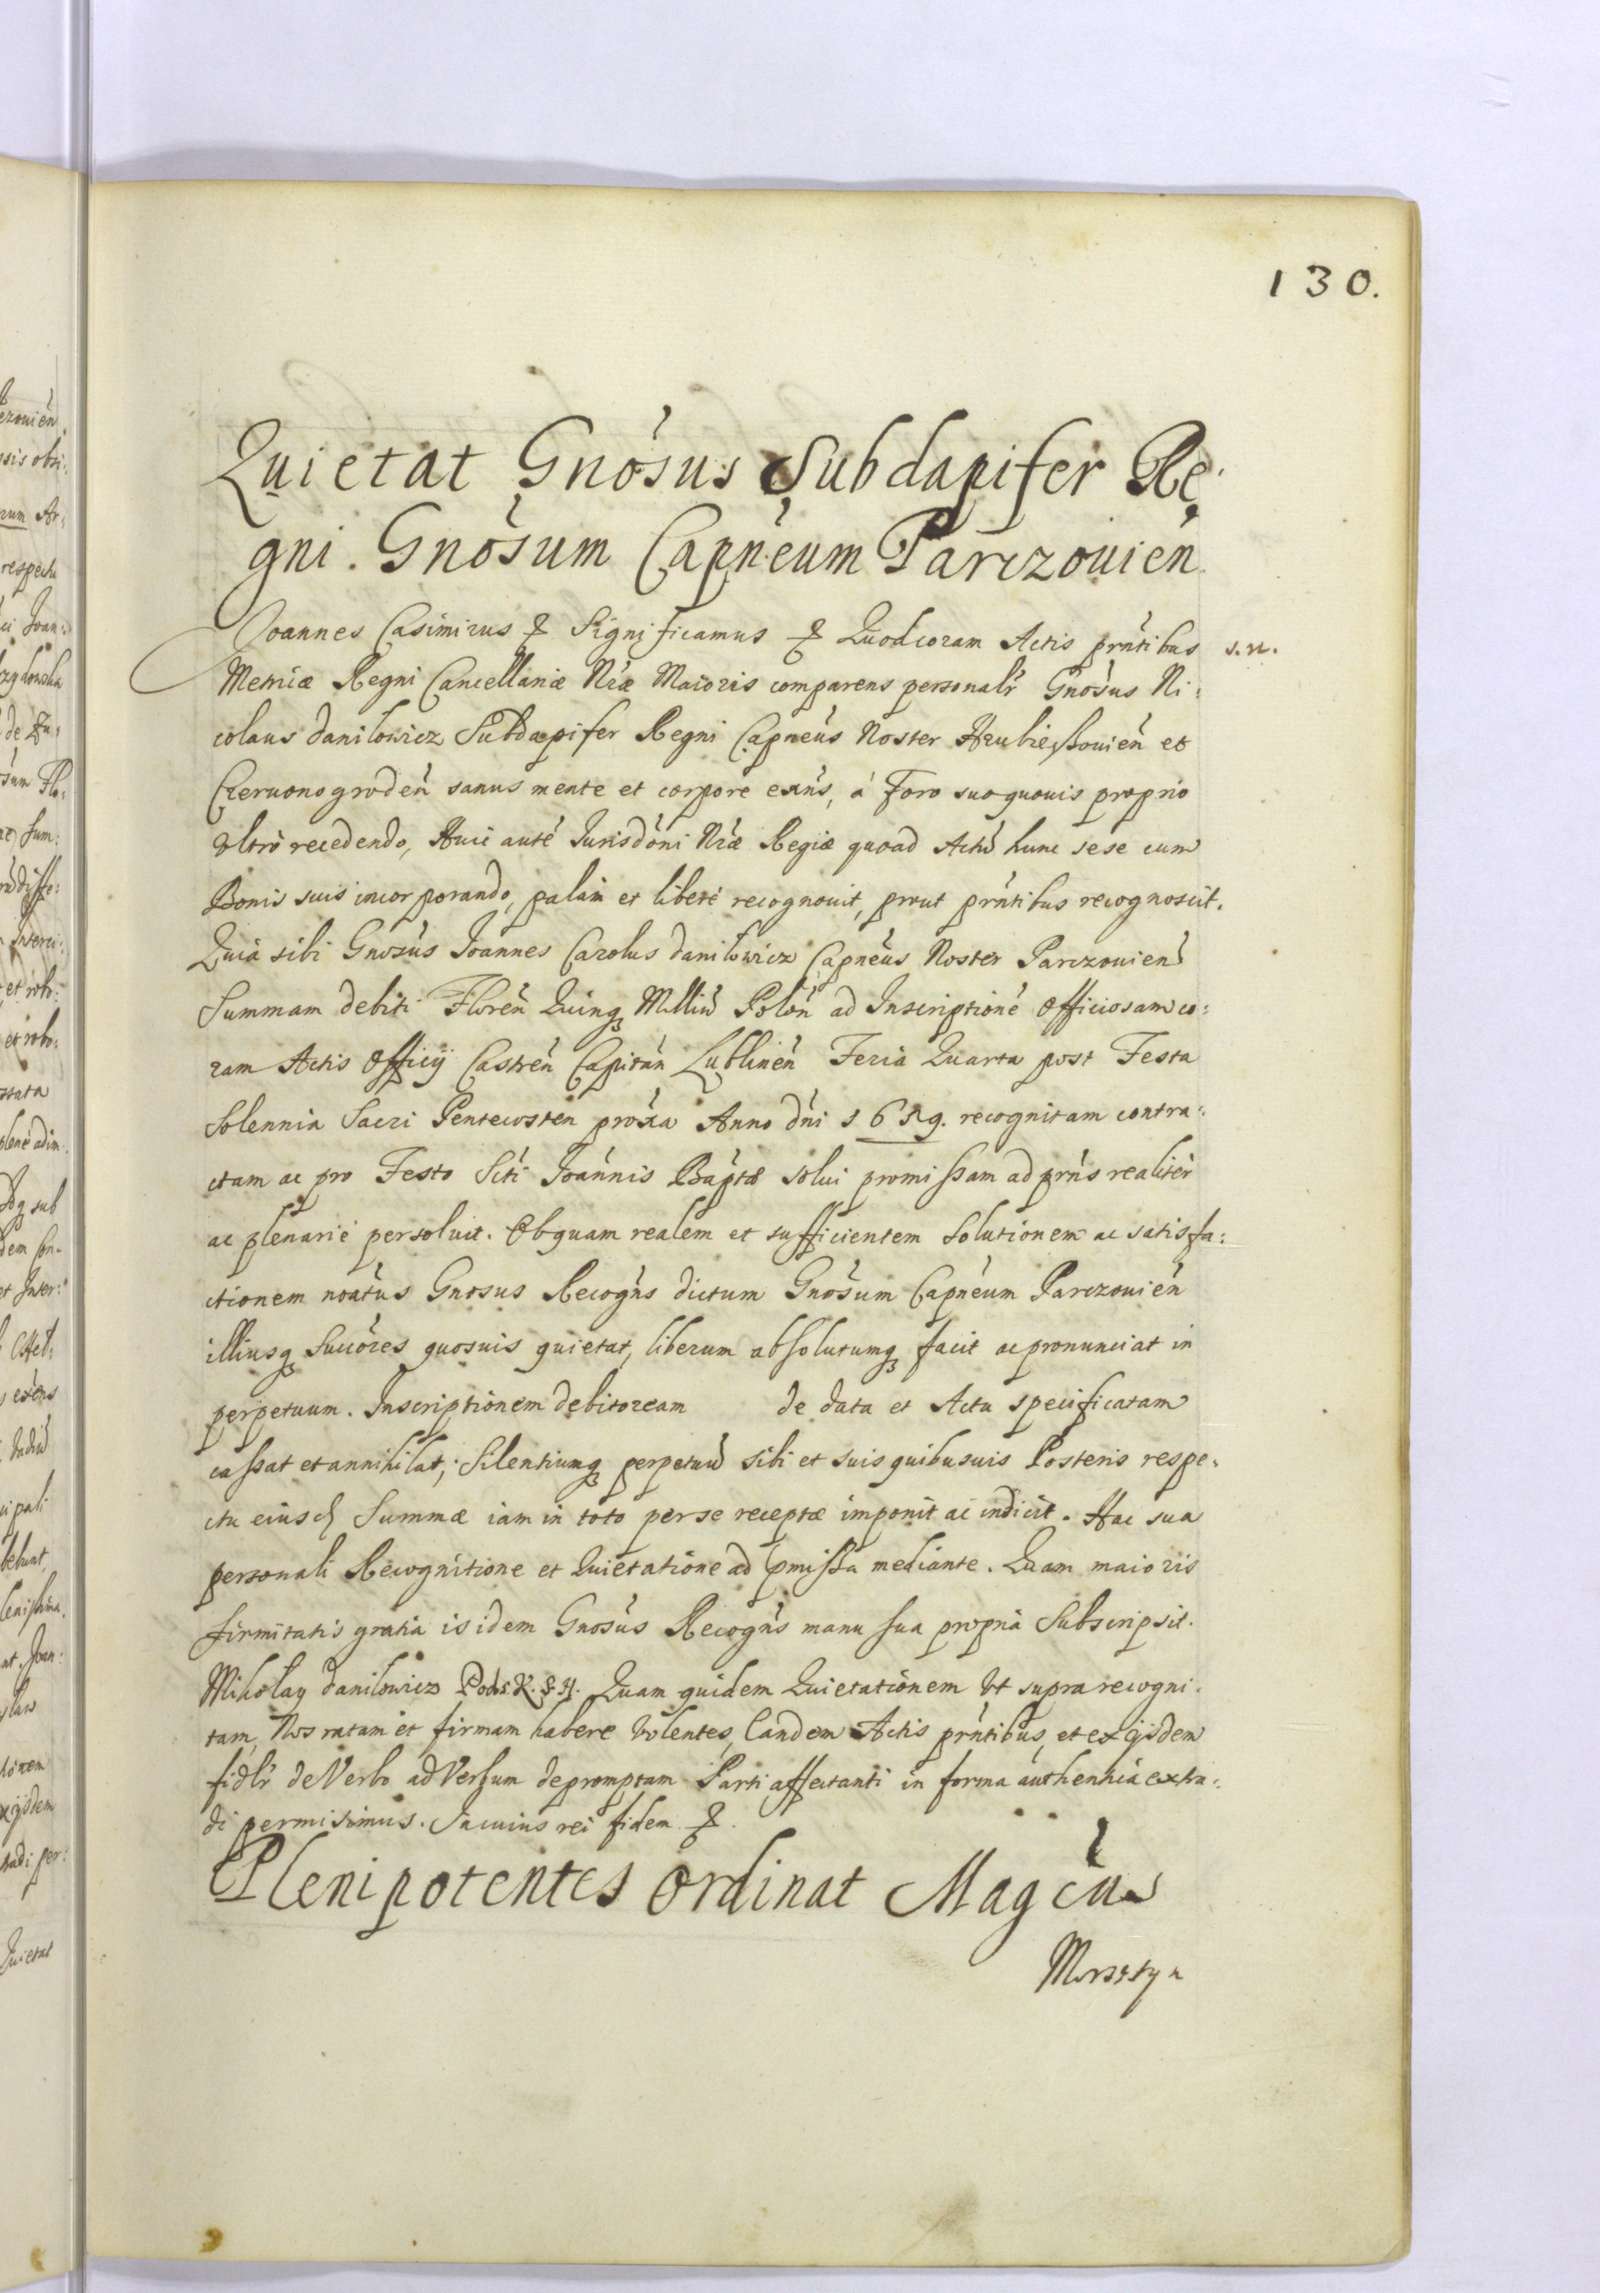 130.
Quietat Gnosus Subdapifer Re:
gni. Gnosum Capneum Parczouien
Joannes Casimirus & Significamus & Quod coram Actis prntibus s.n.
Metricæ Regni Cancellariæ Nræ Maioris comparens personalr Gnosus Ni:
colaus Danilowicz Subdapifer Regni Capneus Noster Hrubieszouien et
Czeruonogroden sanus mente et corpore exns, à Foro suo quouis proprio
vltro recedendo, Huic autē Jurisdoni Nræ Regiæ quoad Actū hunc sese cum
Bonis suis incorporando, palam et liberè recognouit, prout prntibus recognoscit.
Quia sibi Gnosus Joannes Carolus Danilowicz Capneus Noster Parczouien
Summam debiti Floren Quinq Milliū Polon ad Inscriptionē Officiosam co:
ram Actis Officij Castren Capitan Lublinen Feria Quarta post Festa
Solennia Sacri Pentecosten proxa Anno Dni 1659. recognitam contra:
ctam ac pro Festo Scti Joannis Baptæ solui promissam ad prns realiter
ac plenariè persoluit. Ob quam realem et sufficientem Solutionem ac satisfa:
ctionem noatus Gnosus Recogns dictum Gnosum Capneum Parczouien
illiusq Succores quosuis quietat, liberum absolutumq facit ac pronunciat in
perpetuum. Inscriptionem debitoream de data et Actu specificatam
cassat et annihilat; Silentiumq perpetuū sibi et suis quibusuis Posteris respe:
ctu eiusd Summæ iam in toto per se receptæ imponit ac indicit. Hac sua
personali Recognitione et Quietatione ad pmissa mediante. Quam maioris
firmitatis gratia is idem Gnosus Recogns manu sua propria Subscripsit.
Mikolay Danilowicz Pods. K. S. H. Quam quidem Quietationem Vt supra recogni:
tam, Nos ratam et firmam habere Volentes, Eandem Actis prntibus, et ex ijsdem
fidlr de Verbo ad Versum depromptam Parti affectanti in forma authentica extra:
di permisimus. In cuius rei fidem &.
Plenipotentes Ordinat Magcus
Morsztyn